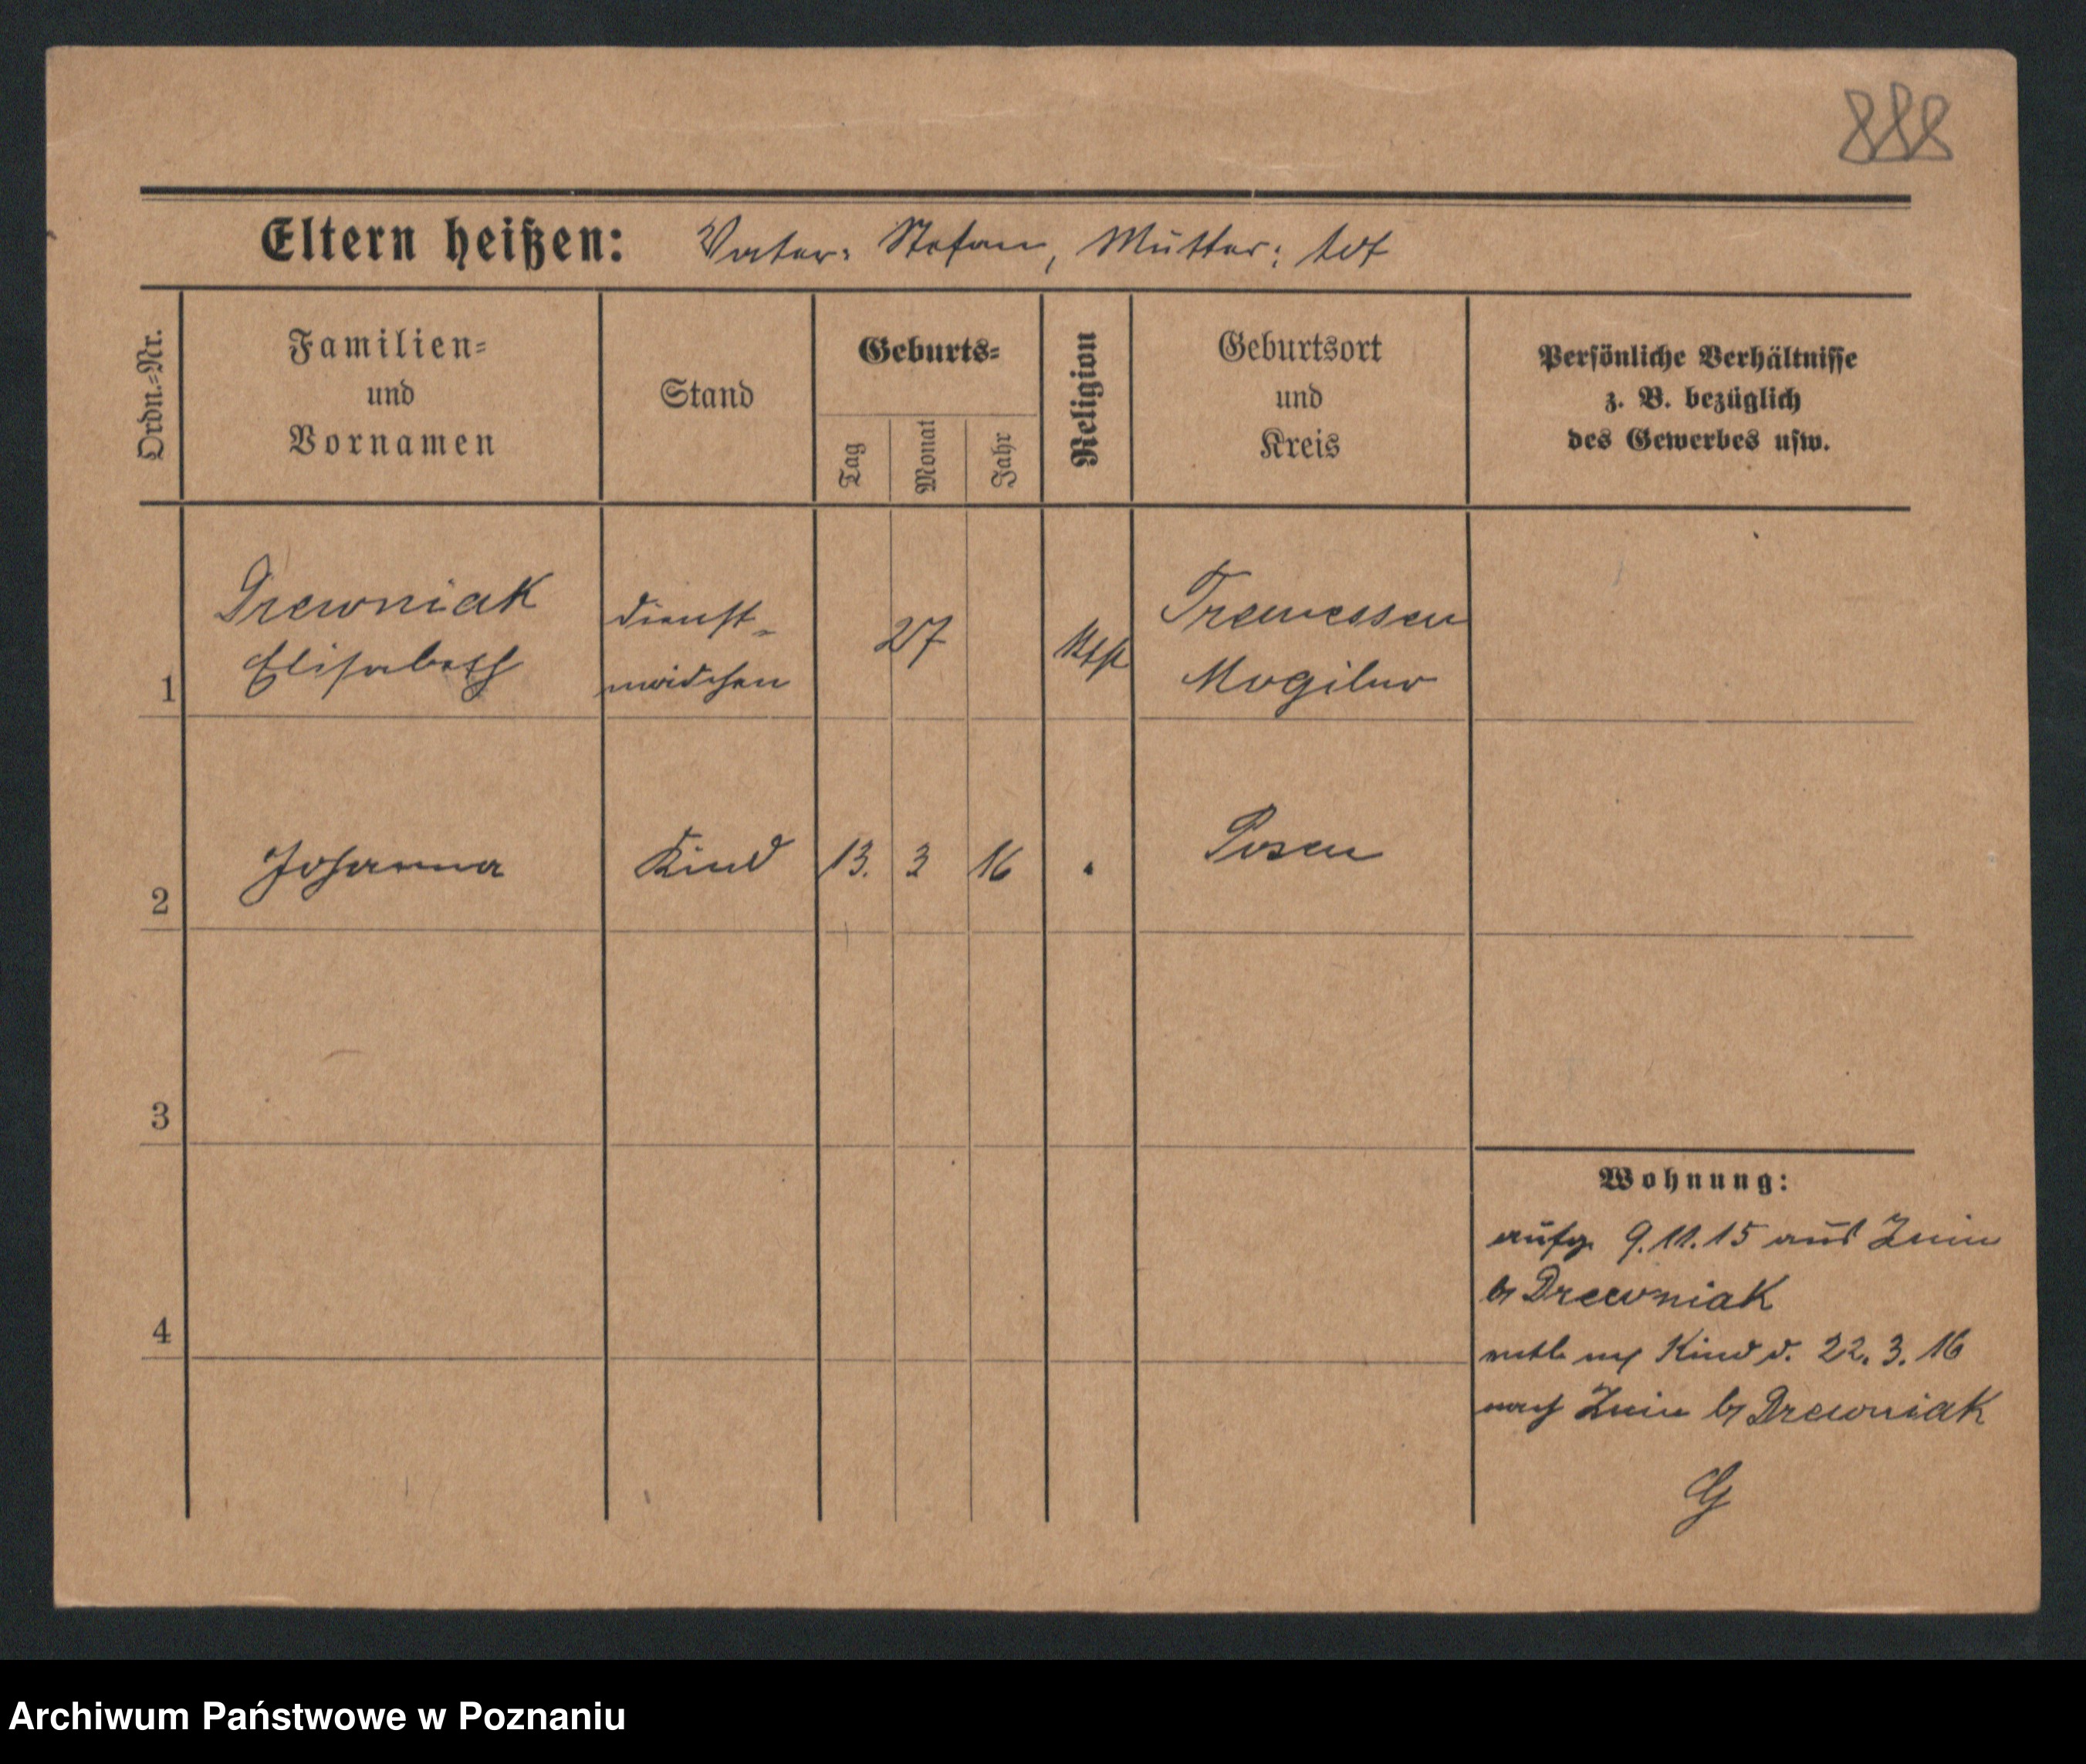 888
Eltern heißen: Vater: Stefan, Mutter: tot
Ordn.=Nr.
Familien=
und
Vornamen
Stand
Geburts=
Tag
Monat
Jahr
Religion
Geburtsort
und
Kreis
Persönliche Verhältnisse
z. B. bezüglich
des Gewerbes usw.
1
Drewniak
Elisabeth
Dienst=
mädchen
27
Ktsh
Tremessen
Mogilno
2
Johanna
Kind
13. 3 16
Posen
3
4
Wohnung:
aufg. 9.11.15 aus Znin
b Drewniak
Kind d. 22.3.16
nach Znin b Drewniak
G
Archiwum Państwowe w Poznaniu